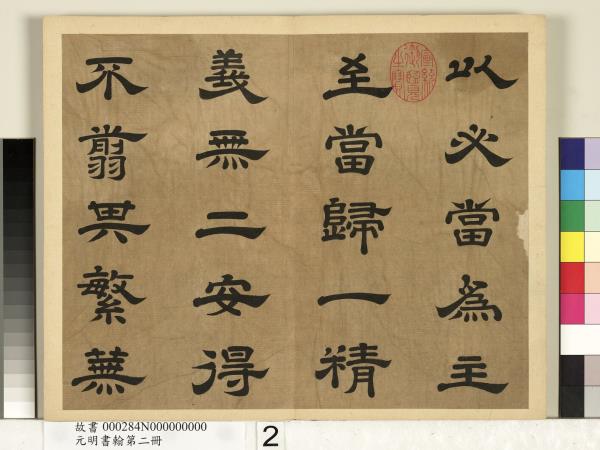 以必當爲主
至當歸一精
義無二安得
不翦其繁蕪
宣統御覽之寶
故書 000284N000000000
元明書翰第二冊
2